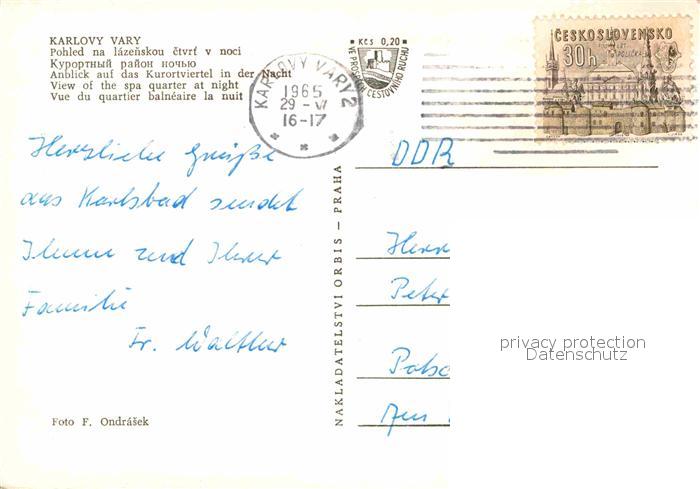 KARLOVY VARY
Pohled na lázeňskou čtvrť v noci
Курортный район ночью
Anblick auf das Kurortviertel in der Nacht
View of the spa quarter at night
Vue du quartier balnéaire la nuit
Kčs 0,20
VE PROSPĚCH CESTOVNÍHO RUCHU
KARLOVY VARY 2
1965
29 - VI
16-17
ČESKOSLOVENSKO
30h
POLIČKA
Herzliche Grüße
aus Karlsbad sendet
Ihnen und Ihrer
Familie
Fr. Walther
DDR
Herrn
Peter
NAKLADATELSTVÍ ORBIS – PRAHA
privacy protection
Datenschutz
Foto F. Ondrášek